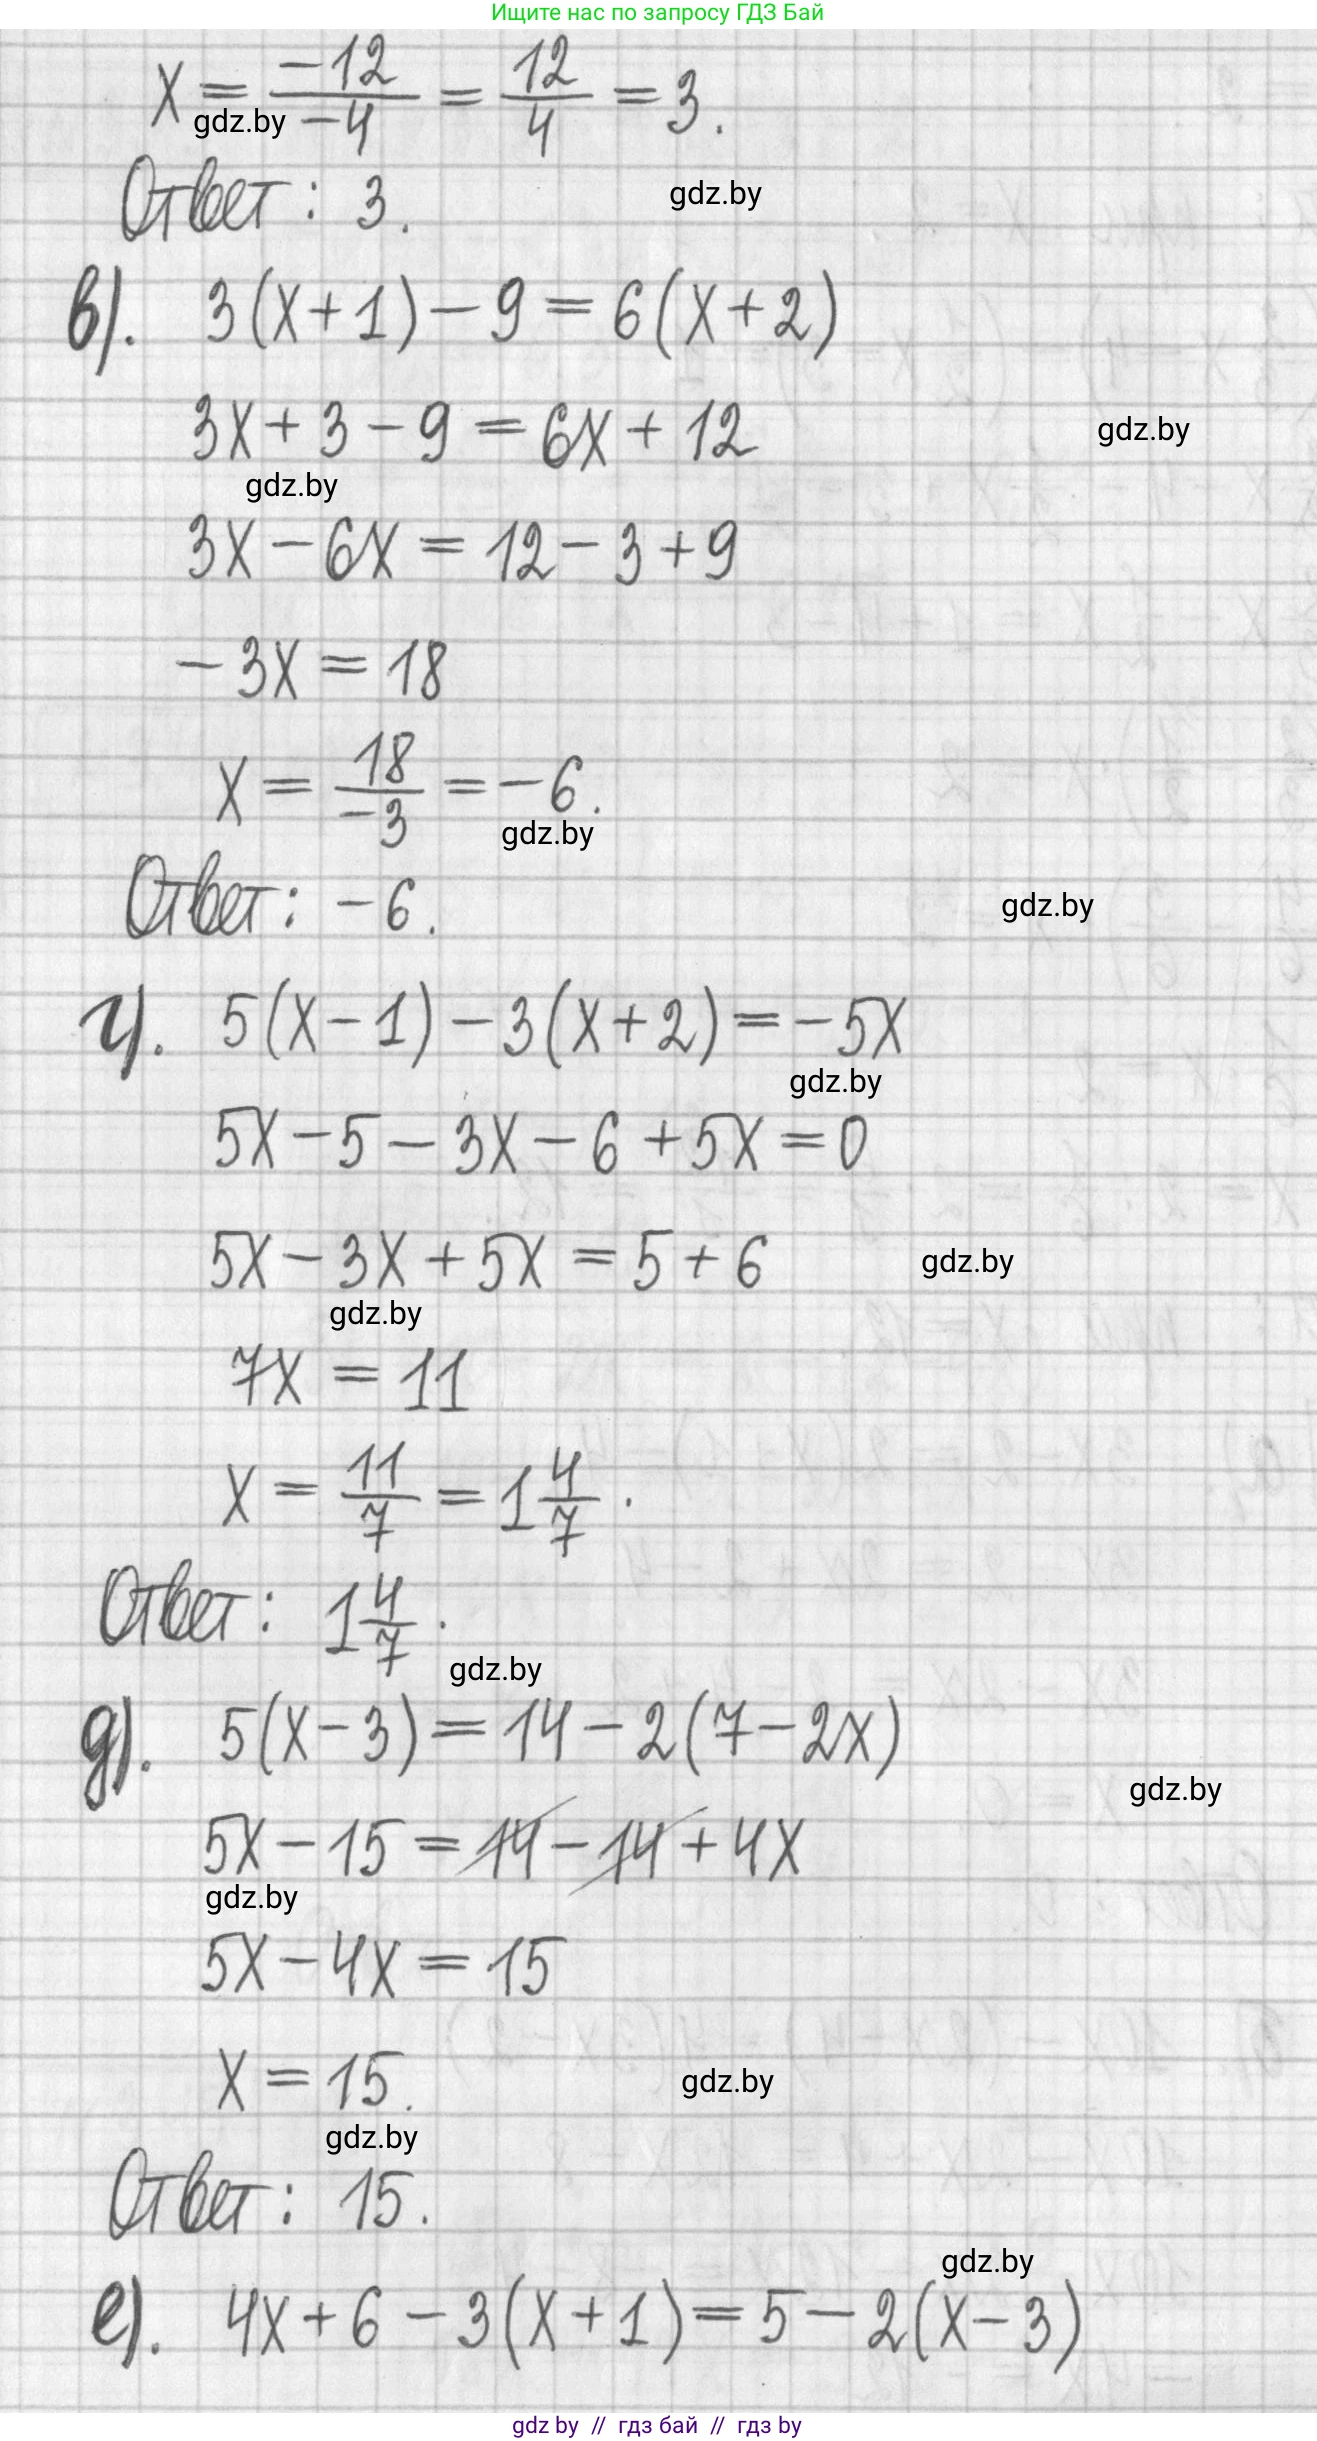 Ищите нас по запросу ГДЗ Бай
x = -12/-4 = 12/4 = 3.
gdz.by
Ответ: 3.
gdz.by
в). 3(x+1) - 9 = 6(x+2)
3x + 3 - 9 = 6x + 12
gdz.by
gdz.by
3x - 6x = 12 - 3 + 9
-3x = 18
x = 18/-3 = -6.
gdz.by
Ответ: -6.
gdz.by
г). 5(x-1) - 3(x+2) = -5x
gdz.by
5x - 5 - 3x - 6 + 5x = 0
5x - 3x + 5x = 5 + 6
gdz.by
gdz.by
7x = 11
x = 11/7 = 1 4/7.
Ответ: 1 4/7.
gdz.by
д). 5(x-3) = 14 - 2(7-2x)
gdz.by
5x - 15 = 14 - 14 + 4x
gdz.by
5x - 4x = 15
x = 15.
gdz.by
gdz.by
Ответ: 15.
gdz.by
е). 4x + 6 - 3(x+1) = 5 - 2(x-3)
gdz by // гдз бай // гдз by